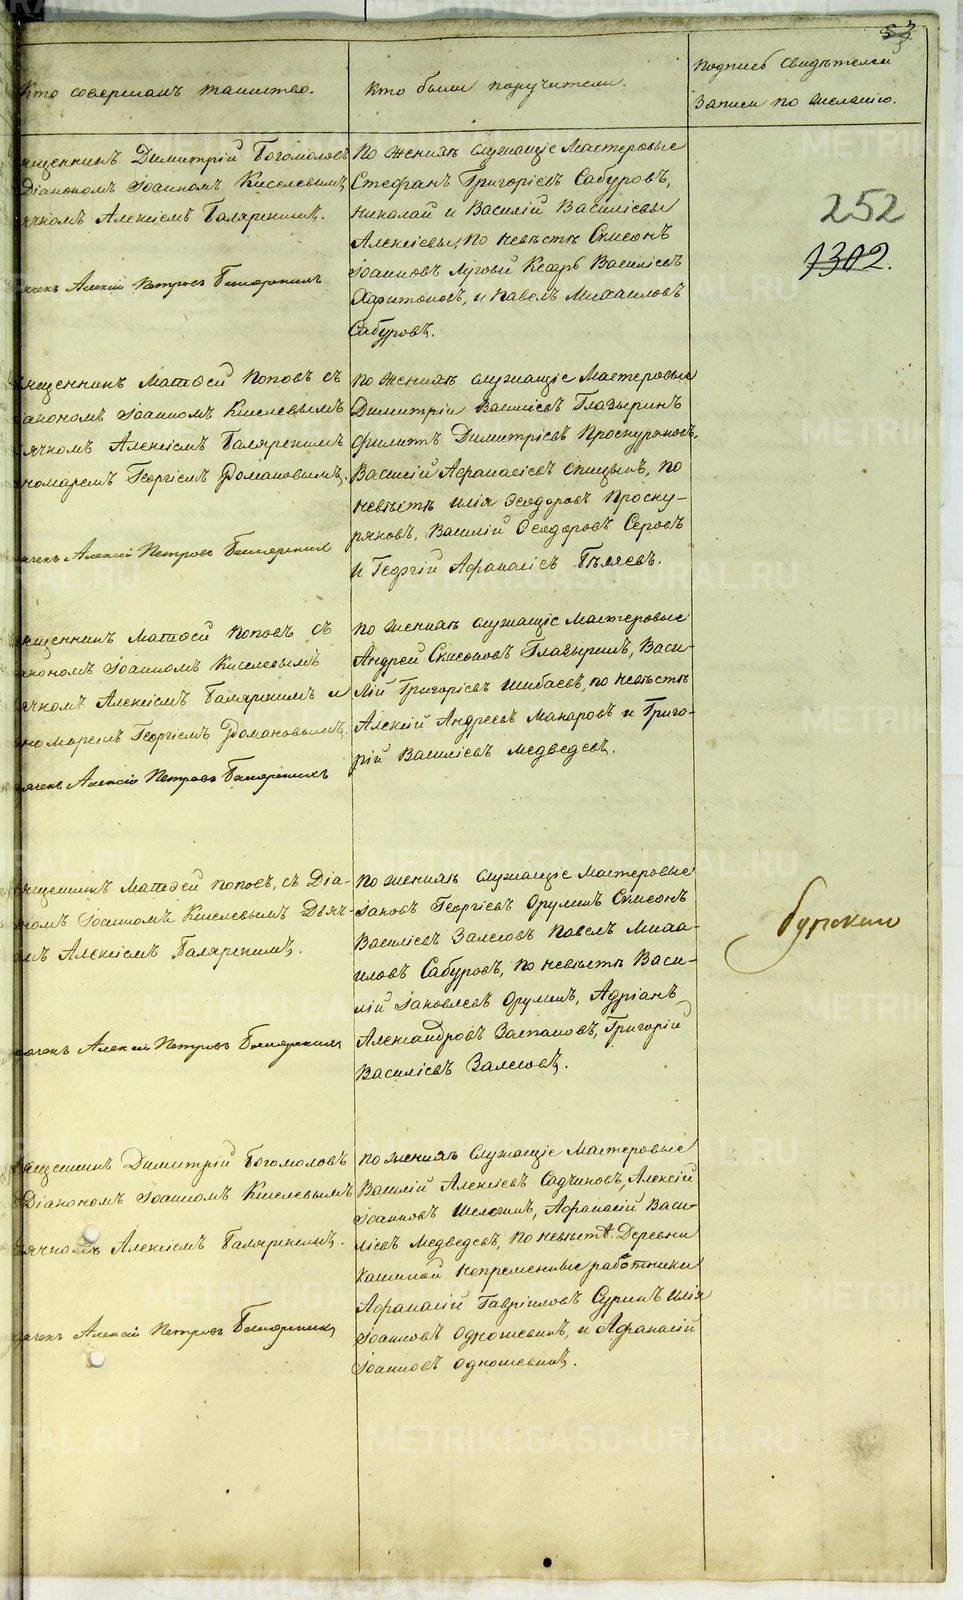 Кто совершалъ таинство.
Кто были поручители.
Подпись свидѣтелей
Записи по желанію.
252
1302.
ященникъ Димитрій Богомоловъ
Діакономъ Іоанномъ Киселевымъ,
ячкомъ Алексіемъ Баляркинымъ.
ячекъ Алексій Петровъ
По женихѣ служащіе Мастеровые
Стефанъ Григоріевъ Сабуровъ,
Николай и Василій Василіевы
Алексіевы, по невѣстѣ Симеонъ
Іоанновъ Луговый Василіевъ
Харитоновъ, и Павелъ Михаиловъ
Сабуровъ.
ященникъ Матѳей Поповъ съ
іакономъ Іоанномъ Киселевымъ
ячкомъ Алексіемъ
номаремъ Георгіемъ Романовымъ.
ячекъ Алексій Петровъ
По женихѣ служащіе Мастеровые
Димитрій Василіевъ Глазыринъ
Филиппъ Димитріевъ Проскуряковъ,
Василій Аѳанасіевъ Спицынъ, по
невѣстѣ Илія Ѳеодоровъ Проску-
ряковъ, Василій Ѳеодоровъ Серовъ
и Георгій Аѳанасіевъ Бѣляевъ.
ященникъ Матѳей Поповъ съ
акономъ Іоанномъ Киселевымъ
ячкомъ Алексіемъ и
номаремъ Георгіемъ Романовымъ.
ячекъ Алексій Петровъ
По женихѣ служащіе Мастеровые
Андрей Симеоновъ Глазыринъ, Васи-
лій Григоріевъ Шибаевъ, по невѣстѣ
Алексій Андреевъ Макаровъ и Григо-
рій Василіевъ Медведевъ.
ященникъ Матѳей Поповъ, съ Діа-
номъ Іоанномъ Киселевымъ Дьяч-
мъ Алексіемъ
ячекъ Алексій Петровъ
По женихѣ служащіе Мастеровые
Іаковъ Георгіевъ Симеонъ
Василіевъ Залесовъ Павелъ Миха-
иловъ Сабуровъ, по невѣстѣ Васи-
лій Іаковлевъ Адріанъ
Александровъ Григорій
Василіевъ Залесовъ.
ященникъ Димитрій Богомоловъ
Діакономъ Іоанномъ Киселевымъ
ячкомъ Алексіемъ
ячекъ Алексій Петровъ
По женихѣ Служащіе Мастеровые
Василій Алексіевъ Садчиковъ, Алексій
Іоанновъ Шелогинъ, Аѳанасій Васи-
ліевъ Медведевъ, по невѣстѣ Деревни
Кашиной непременные работники
Аѳанасій Гавріиловъ Суринъ Илія
Іоанновъ Одношевинъ, и Аѳанасій
Іоанновъ Одношевинъ.